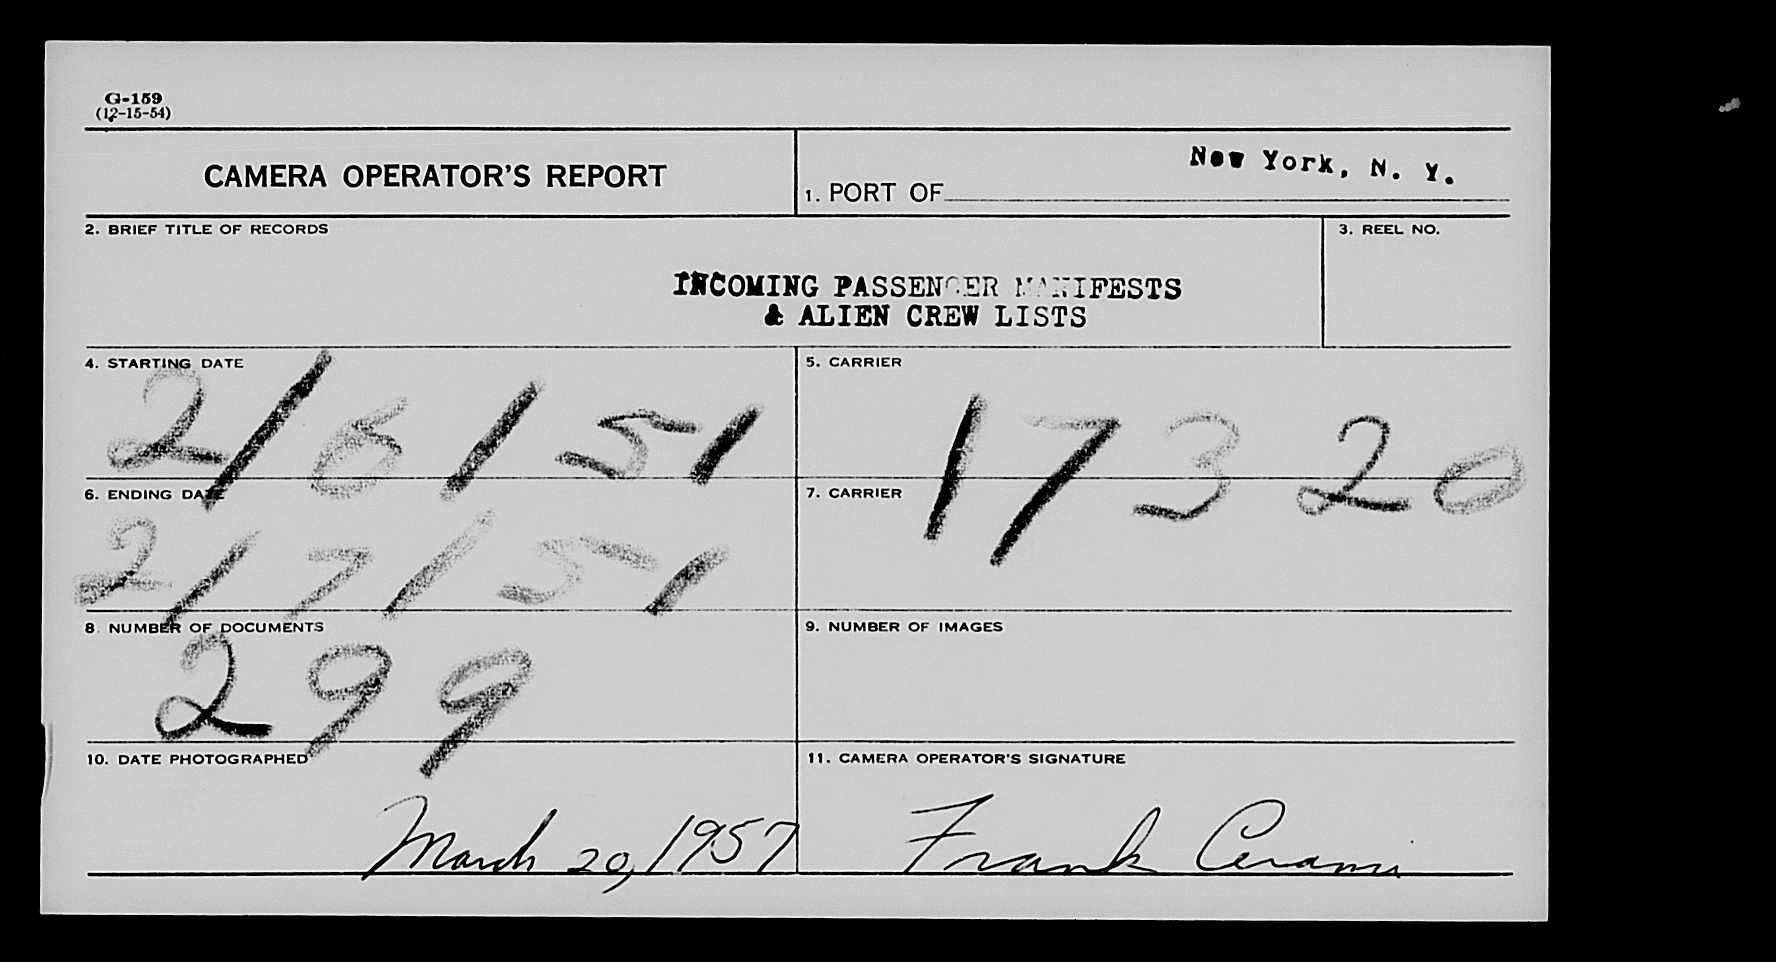 G-159
(12-15-54)
CAMERA OPERATOR'S REPORT
1. PORT OF New York, N. Y.
2. BRIEF TITLE OF RECORDS
3. REEL NO.
INCOMING PASSENGER MANIFESTS
& ALIEN CREW LISTS
4. STARTING DATE
2/6/51
5. CARRIER
17320
6. ENDING DATE
2/7/51
7. CARRIER
8. NUMBER OF DOCUMENTS
299
9. NUMBER OF IMAGES
10. DATE PHOTOGRAPHED
March 20, 1957
11. CAMERA OPERATOR'S SIGNATURE
Frank Cerami